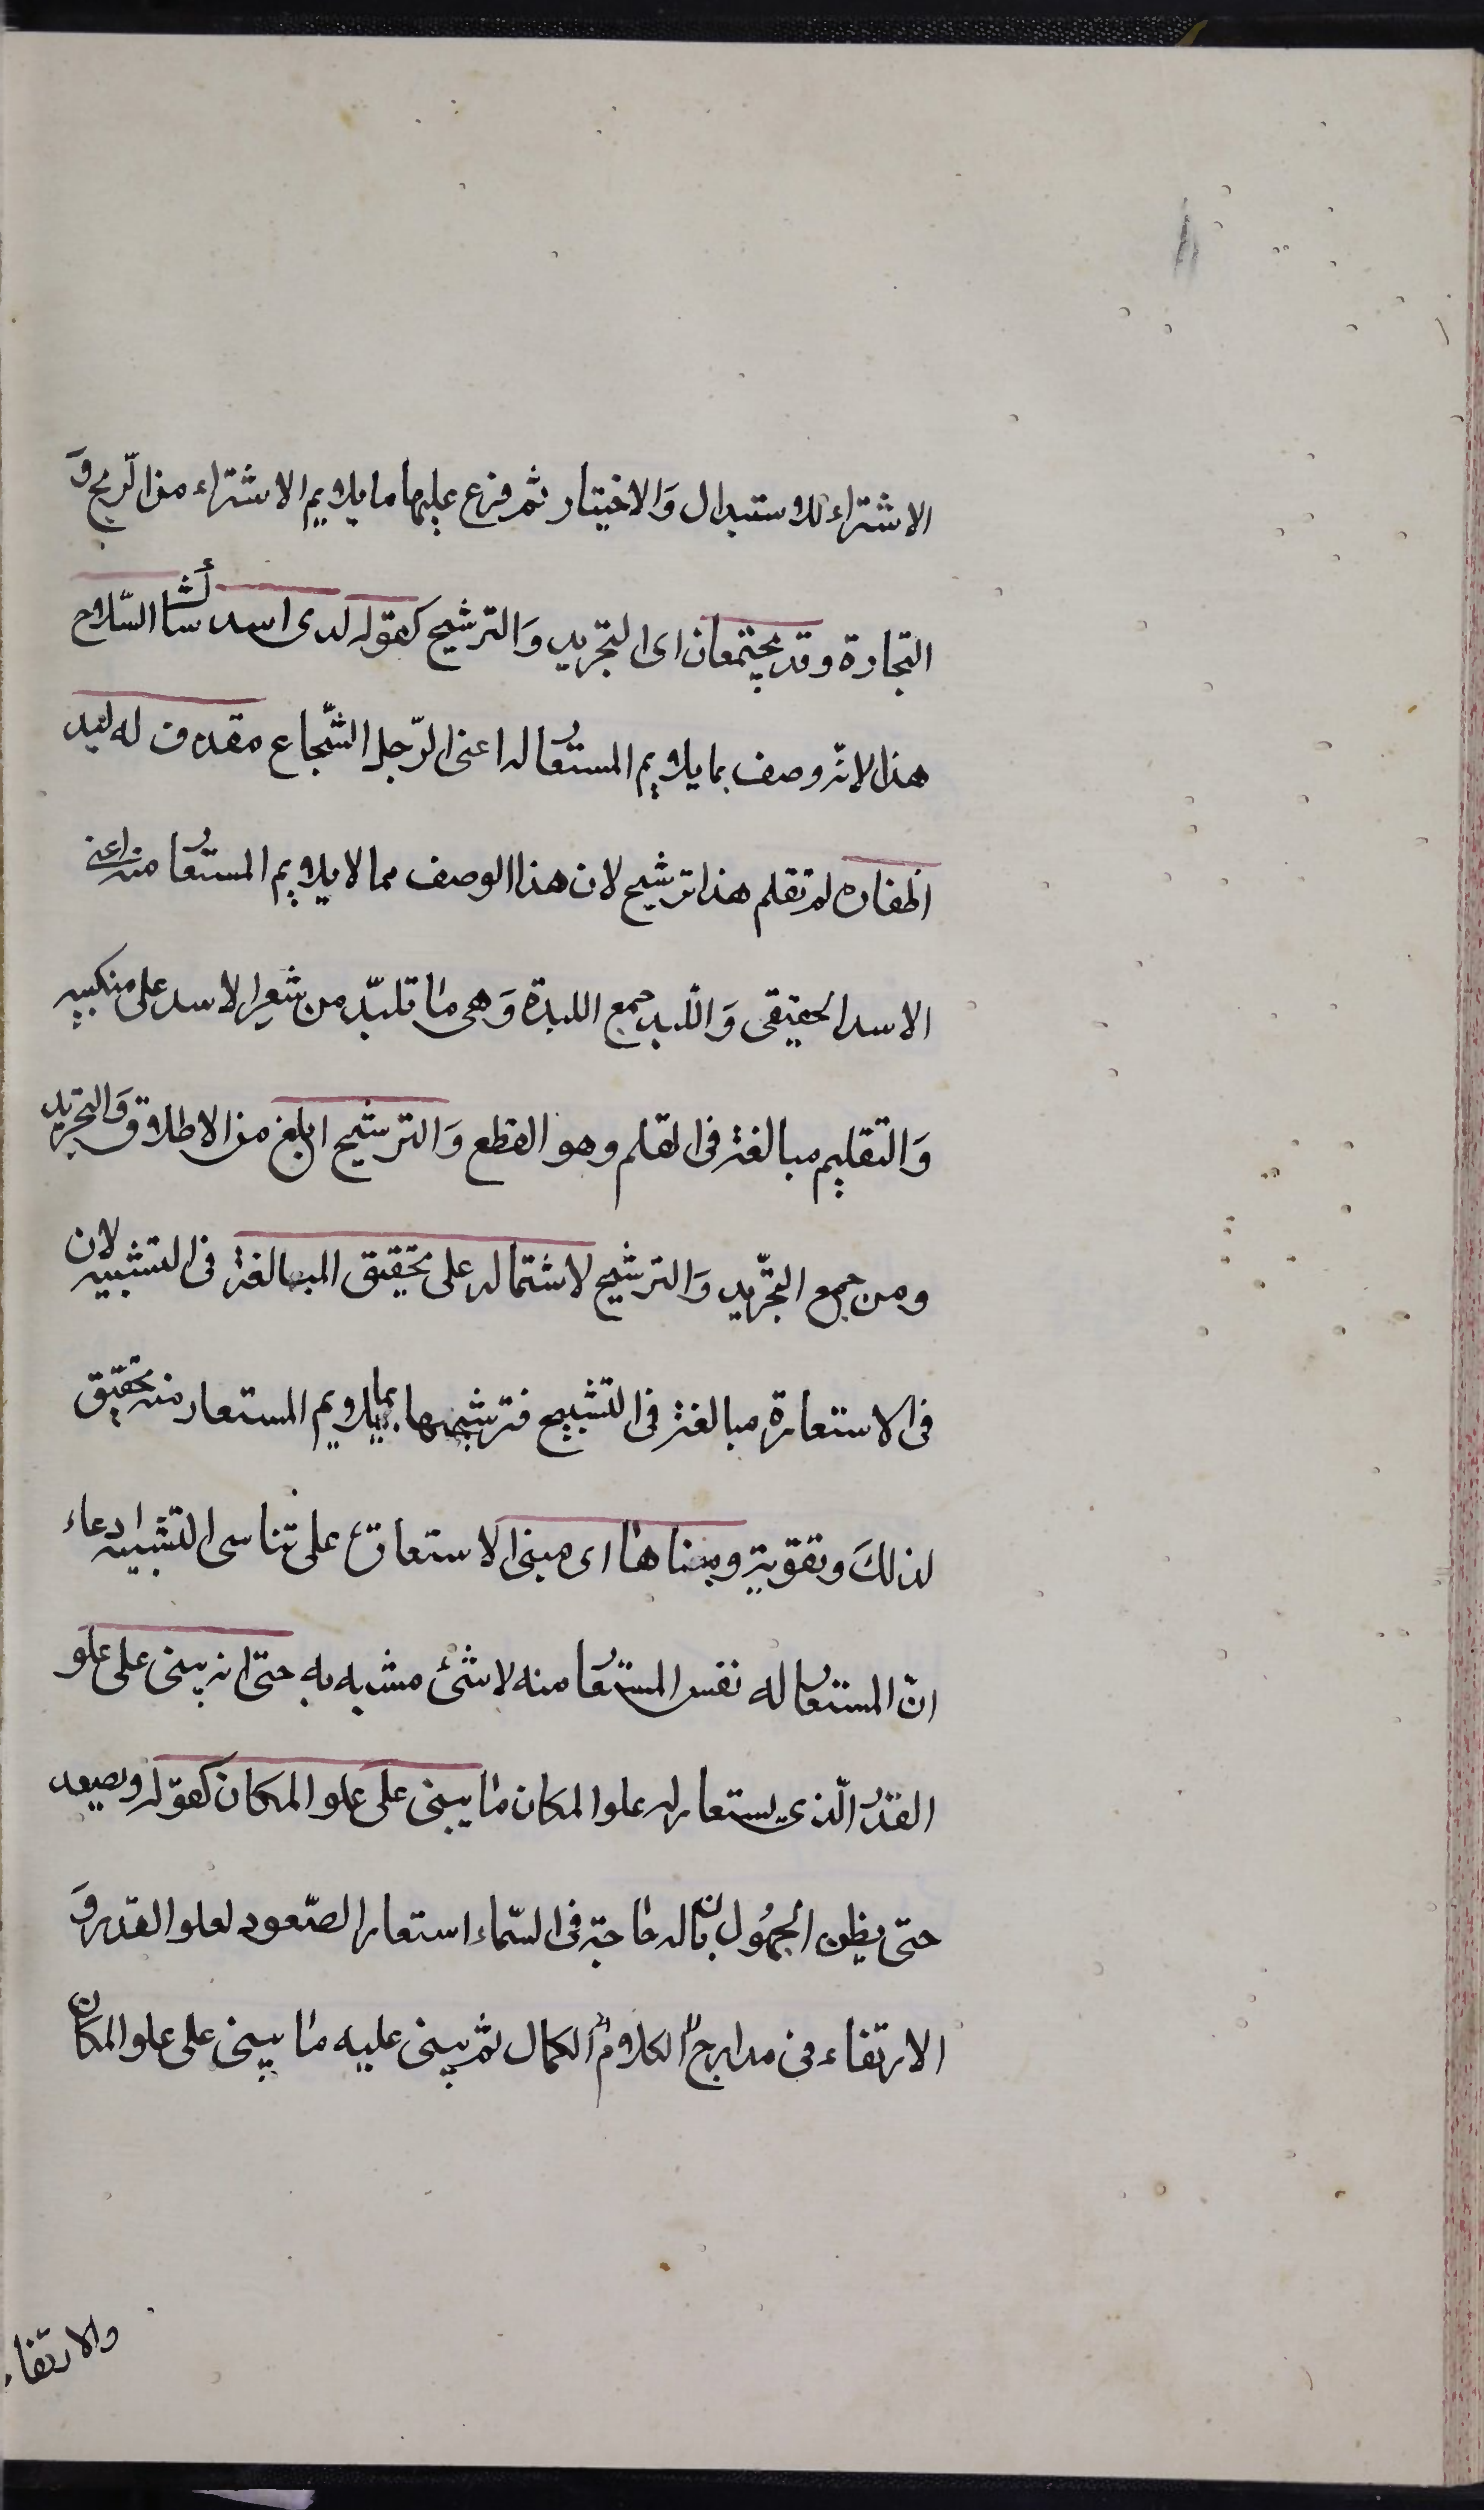 الاشتراء للاستبدال وَالاختيار ثم فرع عليها ما يلايم الاشتراء من الرّبح وَ
التجارة وقد يجتمعان اى التجريد وَالترشيح كقوله لدى اسد شاك السّلاح
هذا لانّه وصف بما يلايم المستعار له اعنى الرّجل الشّجاع مقذف له لبد
اظفاره لم تقلم هذا ترشيح لان هذا الوصف مما لا يلايم المستعار منه اعنى
الاسد الحقيقى وَاللبد جمع اللبدة وَهى ما تلبّد من شعر الاسد على منكبيه
وَالتقليم مبالغة فى القلم وهو القطع وَالترشيح ابلغ من الاطلاق وَالتجريد
ومن جمع التجّريد وَالترشيح لاشتماله على تحقيق المبالغة فى التشبيه لان
فى الاستعارة مبالغة فى التشبيح فترشيحها بما يلايم المستعار منه تحقيق
لذلكَ وتقوية ومبناها اى مبنى الاستعارة على تناسى التشبيه ادعاء
انّ المستعار له نفس المستعار منه لا شئ مشبه به حتى انه يبنى على علو
القدر الّذى يستعار له علو المكان ما يبنى على علو المكان كقوله ويصعد
حتى يظن الجهُول بان له حاجة فى السّماء استعار الصّعود لعلو القدر وَ
الارتقاء فى مدارج الكلام الكمال ثم يبنى عليه ما يبنى على علو المكان
والارتقاء